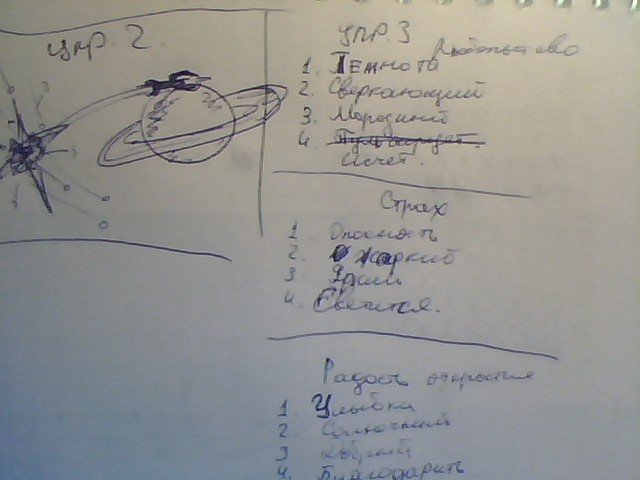 упр. 2
упр. 3
Любопытство
1. Темнота
2. Сверкающий
3. Мерзкий
4. Пульсирует
Исчет.
Страх
1. Опасность
2. Жаркий
3. Яркий
4. Светится.
Радость открытия
1 Улыбка
2. Солнечный
3 Добрый
4. Благодарить